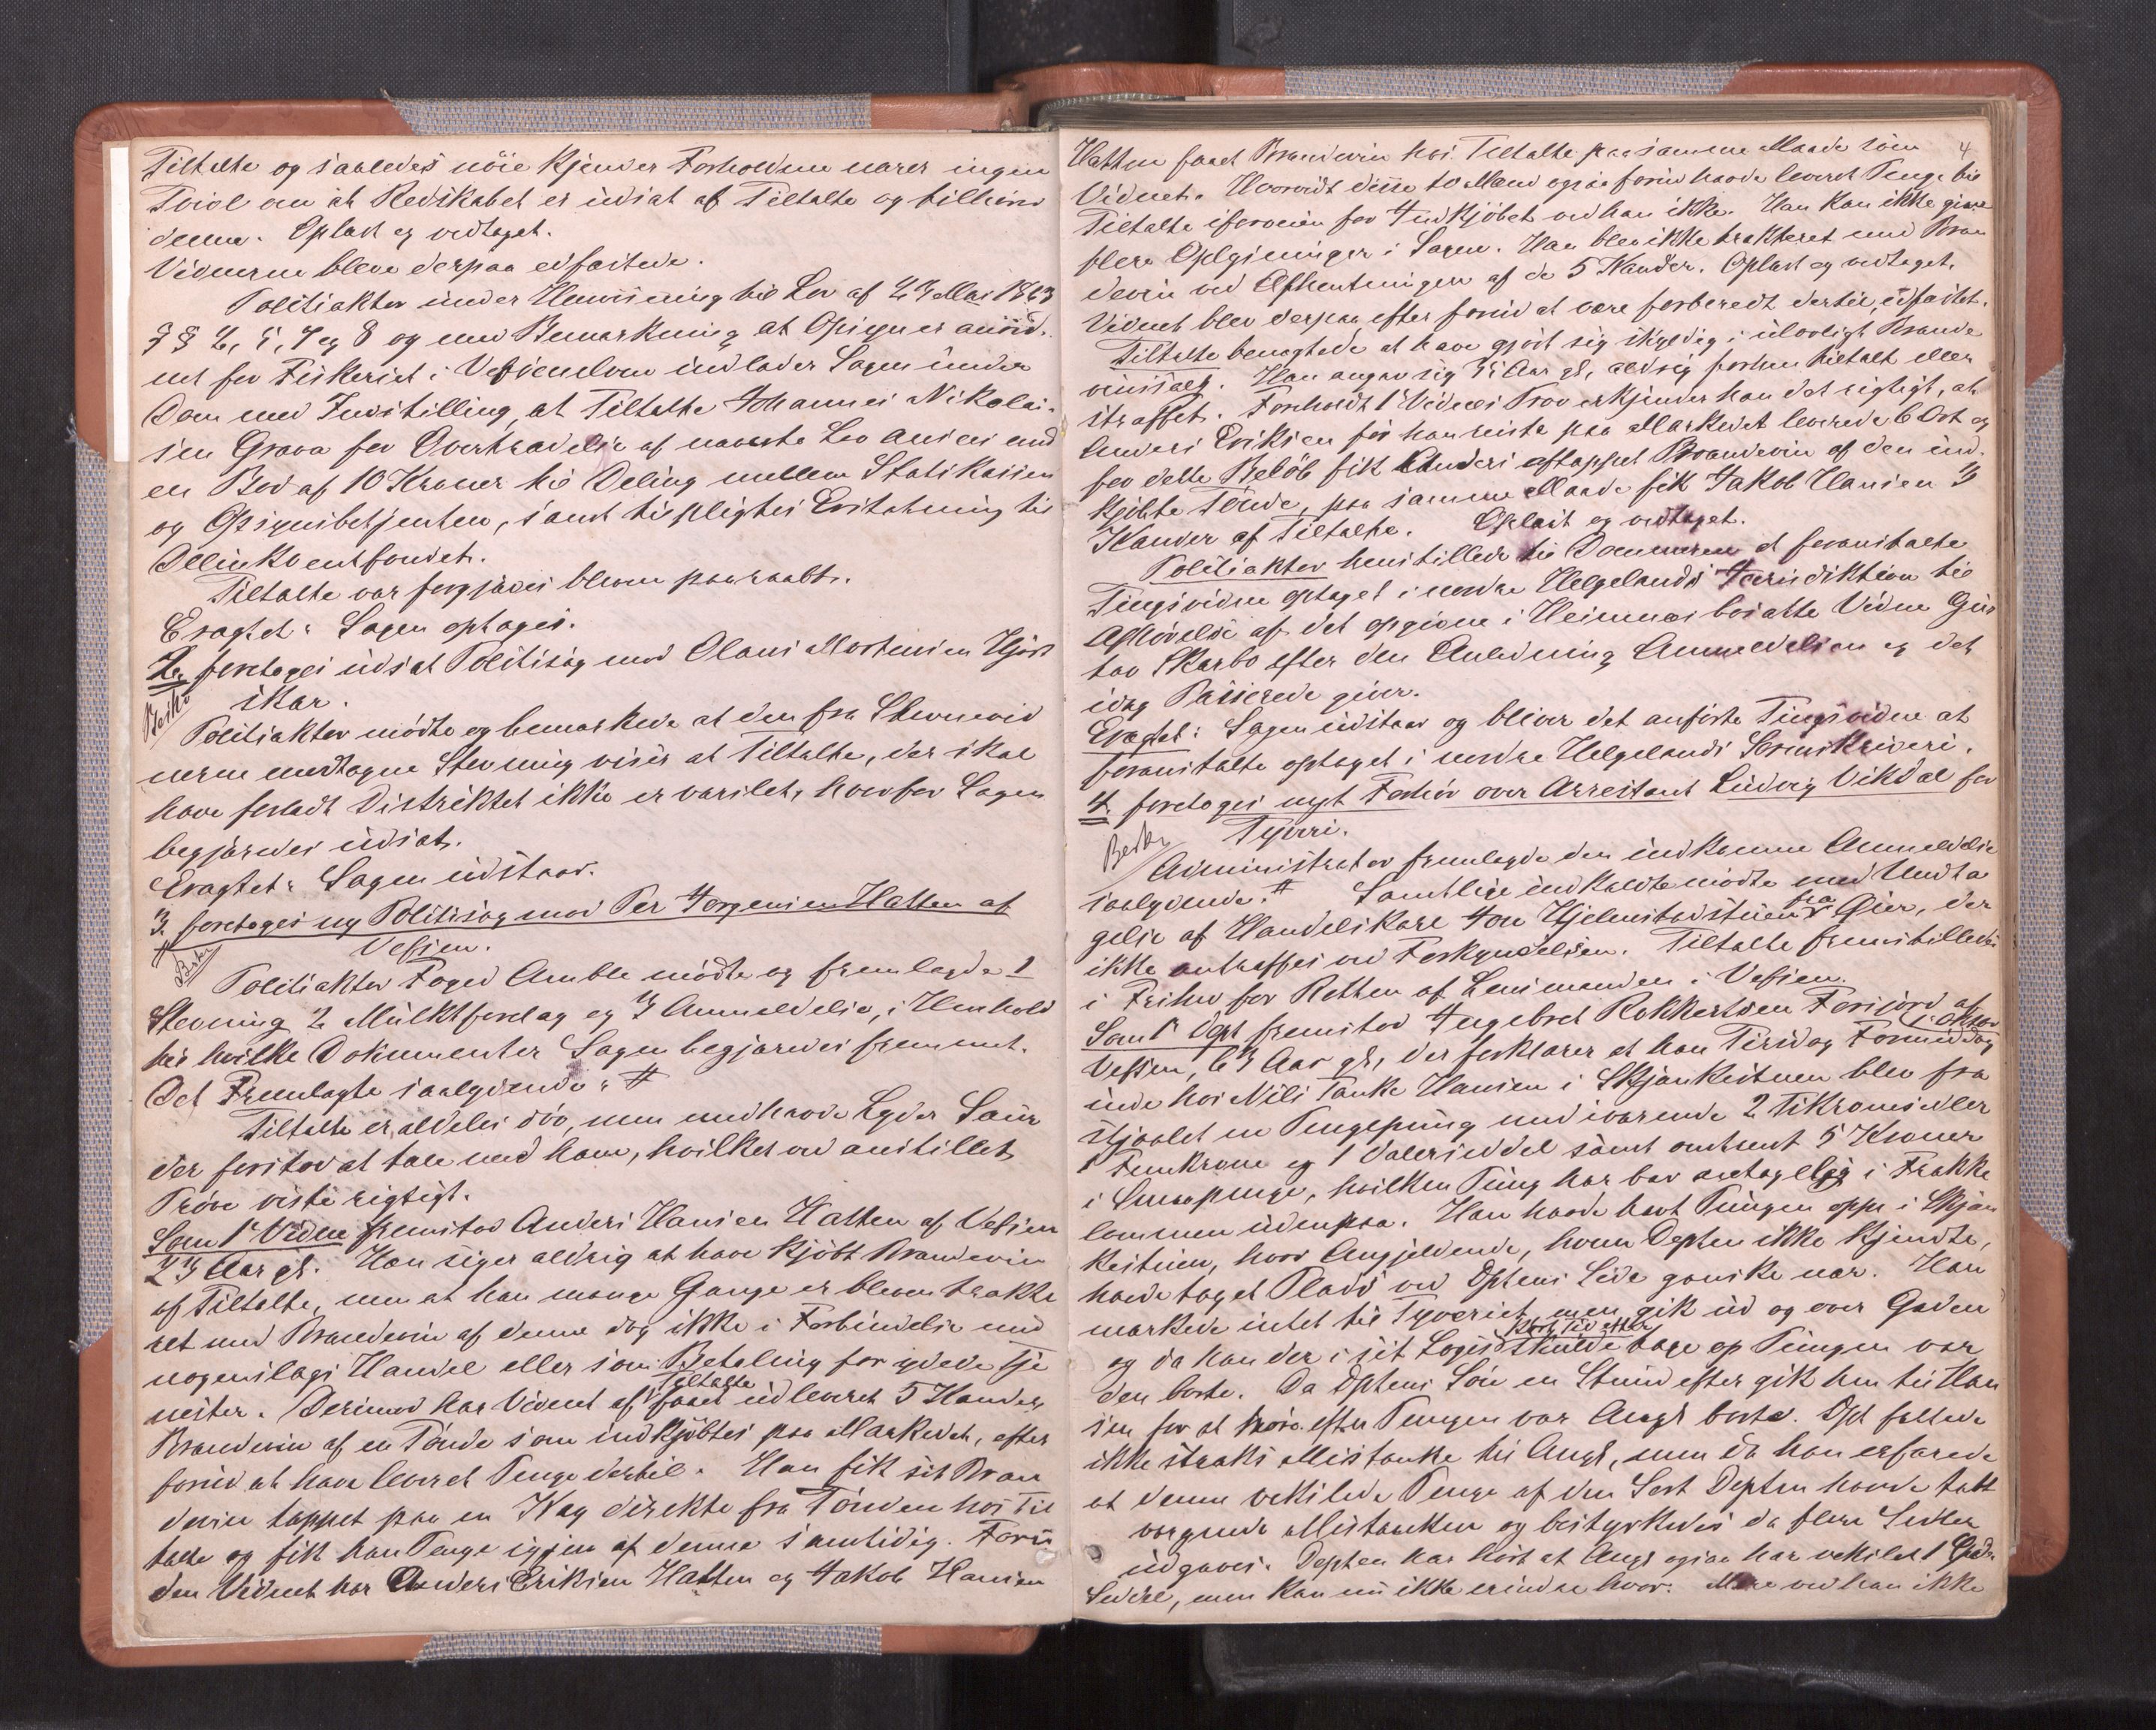 Tiltalte og saaledes nöie kjender Forholdene nærer ingen
Tvivl om at Redskabet er udsat af Tiltalte og tilhörer
denne. Oplæst og vedtaget.
Vidnerne bleve derpaa edfæstede.
Politiaktor under Henvisning til Lov af 23 Mai 1863
§ § 2, 5, 7 og 8 og med Bemærkning at Opsyn er anord-
net for Fiskeriet i Vefsenelven indlader Sagen under
Dom med Indstilling at Tiltalte Johannes Nikolai-
sen Grova for Overtrædelse af nævnte Lov ansees med
en Bod af 10 Kroner til Deling mellem Statskassen
og Opsynsbetjenten, samt tilpligtes Erstatning til
Delinkventfondet.
Tiltalte var forgjæves bleven paaraabt.
Eragtet: Sagen optages.
2. foretoges udsat Politisag mod Olaus Mortensen Hjort
skar.
Besk
Politiaktor mödte og bemærkede at den fra Stevnevid
nerne modtagne Stevning viser at Tiltalte, der skal
have forladt Distriktet ikke er varslet, hvorfor Sagen
begjæredes udsat.
Eragtet: Sagen udstaar.
3. foretoges ny Politisag mod Per Jørgensen Hatten af
Vefsen.
Besk
Politiaktor Foged Amble mödte og fremlagde 1
Stevning 2 Mulktforelag og 3 Anmeldelse, i Henhold
til hvilke Dokumenter Sagen begjæredes fremmet.
Det Fremlagte saalydende: #
Tiltalte er aldeles döv, men medhavde Lyder Saur
der forstod at tale med ham, hvilket ved anstillet
Pröve viste rigtigt.
Som 1ste Vidne fremstod Anders Hansen Hatten af Vefsen
23 Aar gl. Han siger aldrig at have kjöbt Brændevin
af Tiltalte, men at han mange Gange er bleven trakte
ret med Brændevin af denne dog ikke i Forbindelse med
nogenslags Handel eller som Betaling for ydede Tje
nester. Derimod har Vidnet af Tiltalte faaet udleveret 5 Kander
Brændevin af en Tönde som indkjöbtes paa Markedet, efter
forud at have leveret Penge dertil. Han fik sit Bræn
devin tappet paa en Kag direkte fra Tönden hos Til
talte og fik han Penge igjen af denne samtidig. Foru
den Vidnet har Anders Eriksen Hatten og Jakob Hansen
4
Hatten faaet Brændevin hos Tiltalte paa samme Maade som
Vidnet. Hvorvidt disse to Mænd ogsaa forud havde leveret Penge til
Tiltalte iforveien for Indkjöbet ved han ikke. Han kan ikke give
flere Oplysninger i Sagen. Han blev ikke trakteret med Bræn
devin ved Afhentningen af de 5 Kander. Oplæst og vedtaget.
Vidnet blev derpaa, efter forud at være forberedt dertil, edfæstet.
Tiltalte benægtede at have gjort sig skyldig i ulovligt Brænde
vinssalg. Han angav sig Aar gl, aldrig forhen tiltalt eller
straffet. Foreholdt 1ste Vidnes Prov erkjender han det rigtigt, at
Anders Eriksen för han reiste paa Markedet leverede 6 Ort og
for dette Belöb fik Anders aftappet Brændevin af den ind-
kjöbte Tönde, paa samme Maade fik Jakob Hansen 3
Kander af Tiltalte. Oplæst og vedtaget.
Politiaktor henstillede til Dommeren at foranstalte
Tingsvidne optaget i nordre Helgelands Jurisdiktion til
Afhörelse af det opgivne i Hemnes bosatte Vidne Gus
tav Skarbo efter den Anledning Anmeldelsen og det
idag Passerede giver.
Eragtet: Sagen udstaar og bliver det anförte Tingsvidne at
foranstalte optaget i nordre Helgelands Sorenskriveri.
4. foretoges nyt Forhör over Arrestant Ludvig Vikdal for
Tyveri.
Besk
Administrator fremlagde den indkomne Anmeldelse
saalydende: # Samtlige indkaldte mödte med Undta
gelse af Handelskarl Jon Hjelmstadstuen fra Gier, der
ikke antraffes ved Forkyndelsen. Tiltalte fremstilledes
i Frihed for Retten af Lensmanden i Vefsen.
Som 1ste Dept fremstod Ingebret Rokkertsen Forsjord af
Vefsen, 63 Aar gl, der forklarer at han Tirsdag Formiddag
inde hos Nils Tanke Hansen i Skjænkestuen blev fra
stjaalet en Pengepung med ivarende 2 Tikronesedler
1 Femkrone og 1 Dalerseddel samt omtrent 5 Kroner
i Smaapenge, hvilken Pung han bar i Frakke
lommen udenpaa. Han havde havt Pungen oppe i Skjæn
kestuen, hvor Angjeldende, hvem Depten ikke kjendte,
havde taget Plads ved Dptens Side ganske nær. Han
mærkede intet til Tyveriet, men gik ud og over Gaden
og da han der i sit Logis kort Tid efter skulde tage op Pungen var
den borte. Da Dptens Sön en Stund efter gik hen til Han
sen for at höre efter Pungen var Angl borte. Dpt fattede
ikke straks Mistanke til Angl, men da han erfarede
at denne vekslede Penge af den Sort Depten havde tabt
vaagnede Mistanken og bestyrkedes da flere Sedler
udgaves. Depten har hört at Angl ogsaa har vekslet 1
Seddel, men kan nu ikke erindre hvor. Mere ved han ikke